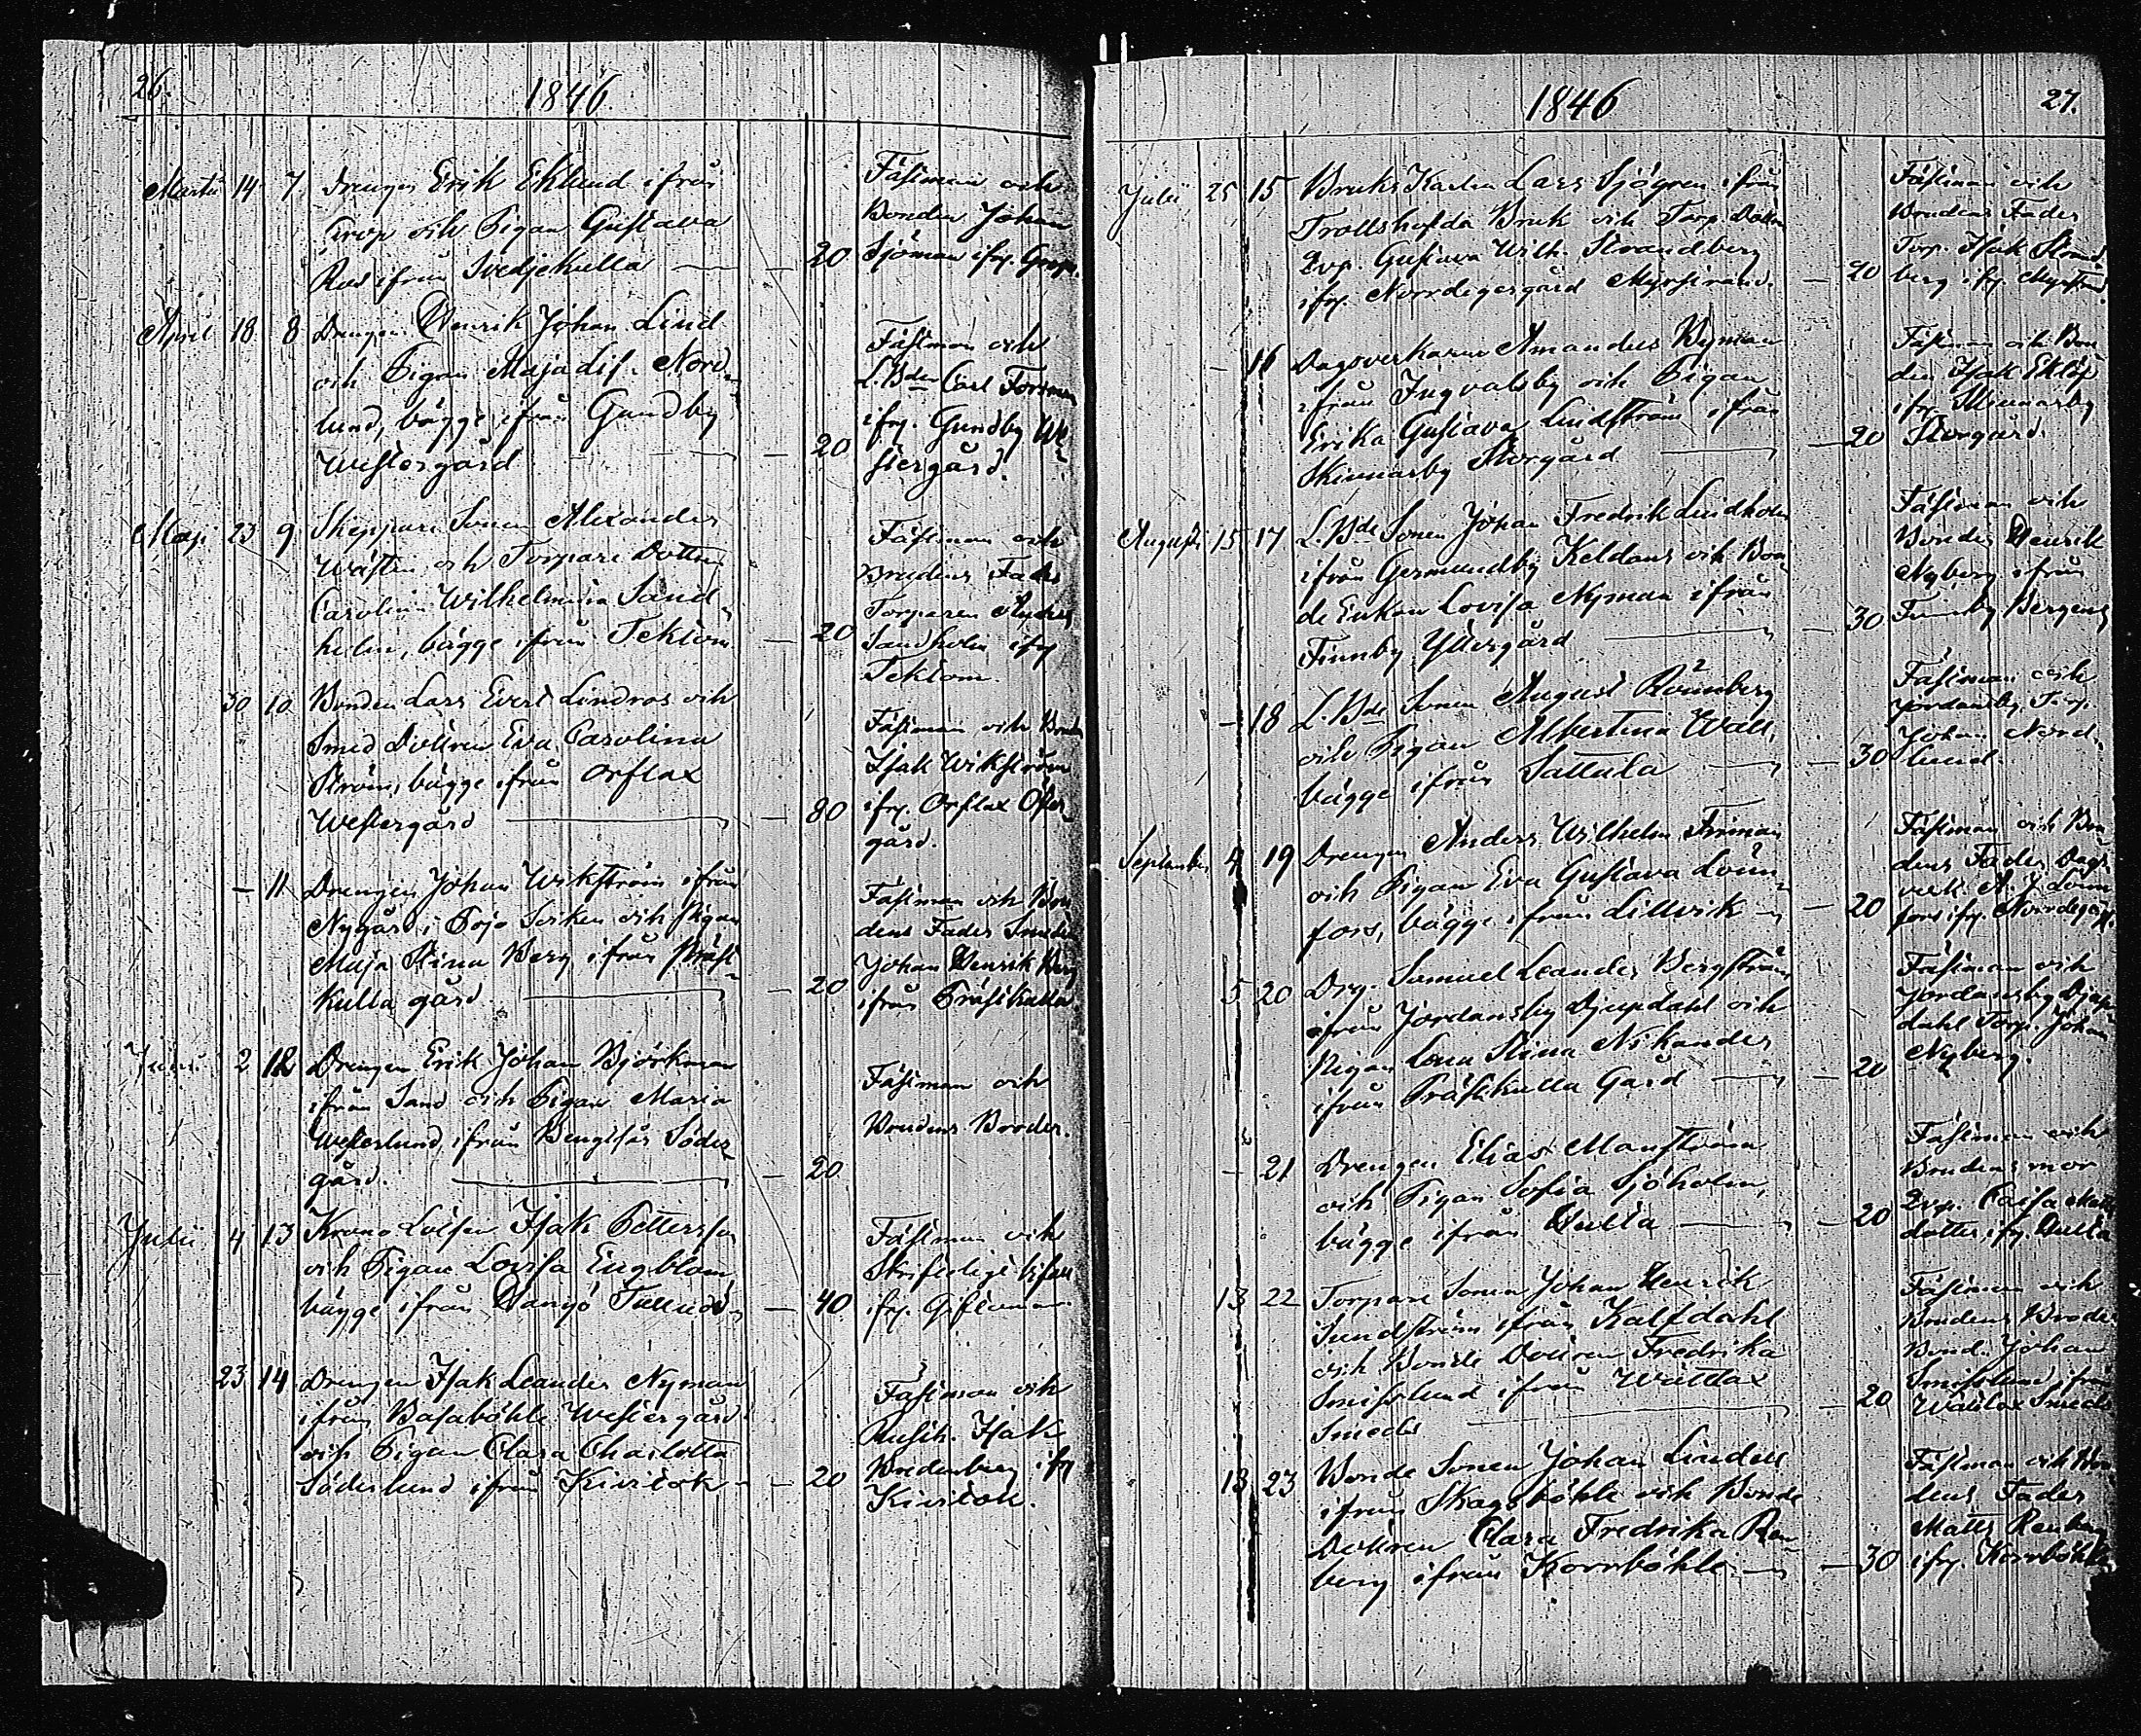 26.
1846
Martii 14 7 Drengen Erik Eklund ifrån
Grop och Pigan Gustava
Ros ifrån Svedjekulla — 20
Fästman och
Bonden Johan
Sjöman ifrn. Grop.
April 18 8 Drengen Henrik Johan Lind
och Pigan Maja Lis. Nord-
lund, bägge ifrån Gundby
Westergård — 20
Fästman och
L.Bden Carl Forsman
ifrn. Gundby We-
stergård.
Maji 23 9 Skeppare Sonen Alexander
Wästen och Torpare Dottren
Carolina Wilhelmina Sand-
holm, bägge ifrån Tektom. — 20
Fästman och
Brudens Fader
Torparen Anders
Sandholm ifrn
Tektom.
30 10 Bonden Lars Evert Lindros och
Smed Dottren Eva Carolina
Ström, bägge ifrån Orslax
Westergård — 80
Fästman och Bonden
Isak Wikström
ifrn. Orslax Öster-
gård.
— 11 Drengen Johan Wikström ifrån
Nygård i Pojo Socken och Pigan
Maja Stina Berg ifrån Präst-
kulla gård — 20
Fästman och Bru-
dens Fader Smeden
Johan Henrik Berg
ifrån Prästkulla
Junii 2 12 Drengen Erik Johan Björkman
ifrån Sand och Pigan Maria
Westerlund ifrån Bengtsår Söder-
gård. — 20
Fästman och
Brudens Broder.
Julii 4 13 Krono Lotsen Isak Pettersson
och Pigan Lovisa Engblom,
bägge ifrån Hangö Tulludd — 40
Fästman och
Skrifteligt bifall
ifrn. Giftoman.
23 14 Drengen Isak Leander Nyman
ifrån Basaböhle Westergård
och Pigan Clara Charlotta
Söderlund ifrån Kivitok — 20
Fästman och
Rusth. Isak
Bredenberg ifrn
Kivitok.
1846
27.
Julii 25 15 Bruks Karlen Lars Sjögren ifrån
Trollshofda Bruk och Torp. Dottren
Qvp. Gustava Wilh. Strandberg
ifrn. Norrdegergård Myrstrand. — 20
Fästman och
Brudens Fader
Torp. Isak Strand-
berg ifrn. Myrstrand.
— 16 Dagsverkaren Amandus Nyman
ifrån Ingvalsby och Pigan
Erika Gustava Lindström ifrån
Skinnarby Storgård — 20
Fästman och Bon-
den Isak Eklöf
ifrn. Skinnarby
Storgård.
Augusti 15 17 L.Bde Sonen Johan Fredrik Lindholm
ifrån Germundby Keldans och Bon-
de Enkan Lovisa Nyman ifrån
Finnby Yttergård — 30
Fästman och
Bonden Henrik
Nyberg ifrån
Finnby Bergens
— 18 L.Bde Sonen August Rönnberg
och Pigan Albertina Wall,
bägge ifrån Sattala — 30
Fästman och
Jordansby Torp.
Johan Nord-
lund.
September 4 19 Drengen Anders Wilhelm Finman
och Pigan Eva Gustava Lönn-
fors, bägge ifrån Lillvik — 20
Fästman och Bru-
dens Fader Dags-
verk. A. J. Lönn-
fors ifrn.
5 20 Drg. Samuel Leander Bergström
ifrån Jordansby Djupdahl och
Pigan Lena Stina Nikander
ifrån Prästkulla Gård — 20
Fästman och
Jordansby Djup-
dahl Torp. Johan
Nyberg.
— 21 Drengen Elias Manström
och Pigan Sofia Sjöholm,
bägge ifrån Hulta — 20
Fästman och
Brudens mor
Qvp. Caisa Matts
dotter ifrn. Hulta
13 22 Torpare Sonen Johan Henrik
Sundström ifrån Kalfdahl
och Bonde Dottren Fredrika
Smisslund ifrån Wättlax
Smeds — 20
Fästman och
Brudens Broder
Bond. Johan
Smisslund ifrån
Wättlax Smeds
13 23 Bonde Sonen Johan Lindell
ifrån Skogsböhle och Bonde
Dottren Clara Fredrika Ren-
berg ifrån Korrböhle — 30
Fästman och Bru-
dens Fader
Matts Renberg
ifrn. Korrböhle